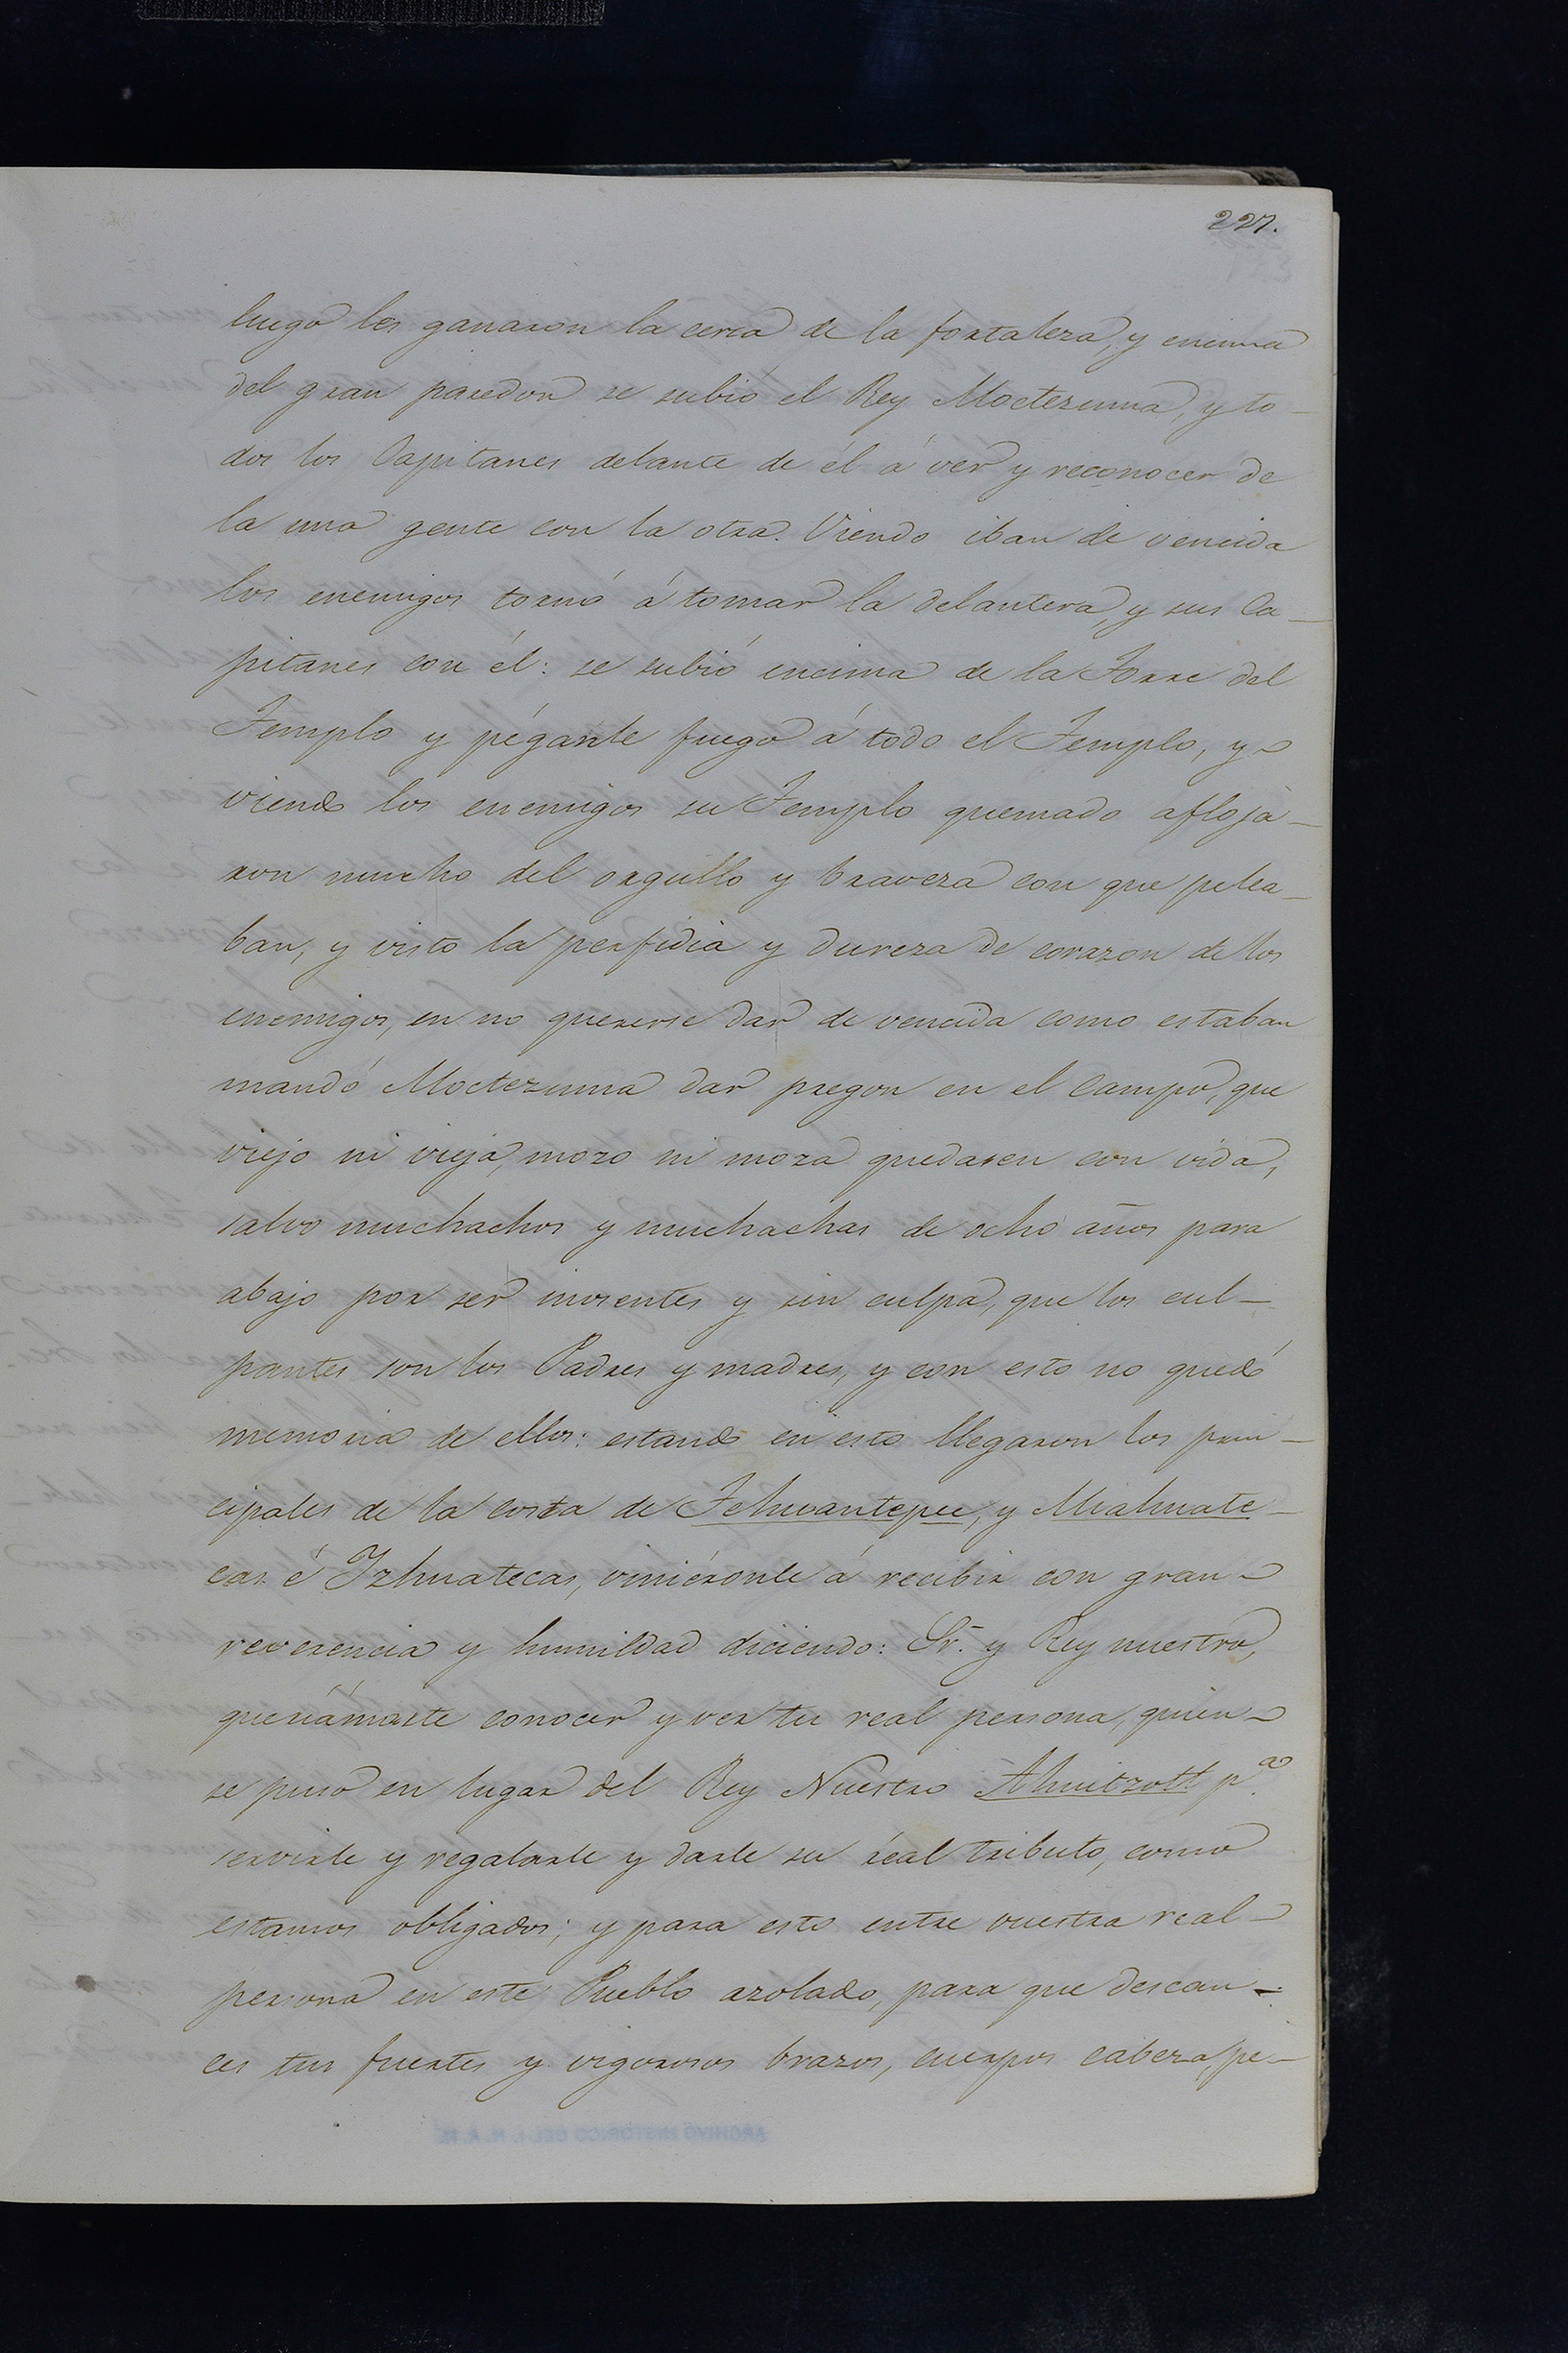 227.
luego les ganaron la cerca de la fortaleza, y encima
del gran paredon se subió el Rey Moctezuma, y to-
dos los Capitanes delante de él á ver y reconocer de
la una gente con la otra. Viendo iban de vencida
los enemigos tornó á tomar la delantera, y sus Ca-
pitanes con él: se subió encima de la Torre del
Templo y péganle fuego á todo el Templo, y
viendo los enemigos su Templo quemado aflojá-
ron mucho del orgullo y braveza con que pelea-
ban, y visto la perfidia y dureza de corazon de los
enemigos, en no quererse dar de vencida como estaban
mandó Moctezuma dar pregon en el Campo, que
viejo ni vieja, mozo ni moza quedasen con vida,
salvo muchachos y muchachas de ocho años para
abajo por ser inosentes y sin culpa, que los cul-
pantes son los Padres y madres, y con esto no quedó
memoria de ellos: estando en esto llegaron los prin-
cipales de la costa de Tehuantepec, y Miahuate-
cas é Izhuatecas, viniéronle á recibir con gran
reverencia y humildad diciendo: Sr. y Rey nuestro,
queriámoste conocer y ver tu real persona, quien
se puso en lugar del Rey Nuestro Ahuitzotl p.a
servirle y regalarle y darle su real tributo, como
estamos obligados; y para esto entre vuestra real
persona en este Pueblo azolado, para que descan-
ces tus fuertes y vigorosos brazos, cuerpos cabeza, pe-
ARCHIVO HISTORICO DEL I. N. A. H.